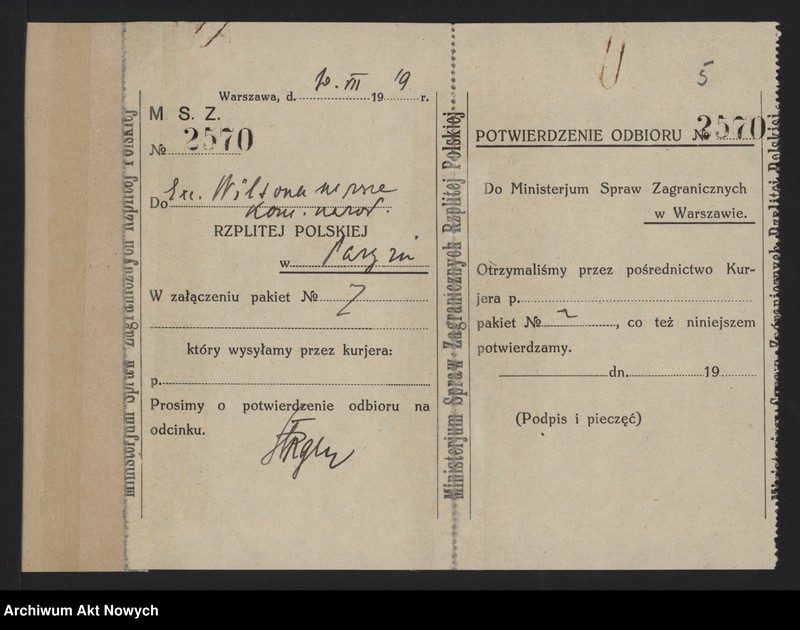 Warszawa, d. 10. III 1919 r.
M S. Z.
№ 2570
Do Exc. Wilsona
RZPLITEJ POLSKIEJ
w Paryżu
W załączeniu pakiet №
który wysyłamy przez kurjera:
p.
Prosimy o potwierdzenie odbioru na
odcinku.
Ministerjum Spraw Zagranicznych Rzplitej Polskiej
Ministerjum Spraw Zagranicznych Rzplitej Polskiej
5
POTWIERDZENIE ODBIORU № 2570
Do Ministerjum Spraw Zagranicznych
w Warszawie.
Otrzymaliśmy przez pośrednictwo Kur-
jera p.
pakiet №, co też niniejszem
potwierdzamy.
dn. 19
(Podpis i pieczęć)
Ministerjum Spraw Zagranicznych Rzplitej Polskiej
Archiwum Akt Nowych